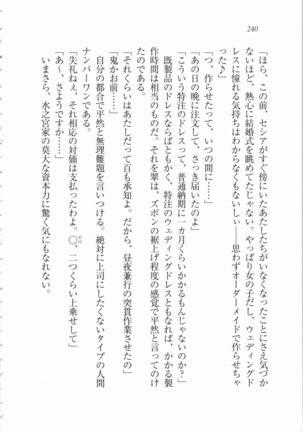 240
「ほら、この前、セシアがすぐ傍にいたあたしたちがいなくなったことにさえ気づか
ないほど、熱心に結婚式を眺めてたじゃない。やっぱり女の子だし、ウェディングド
レスに憧れる気持ちはわからなくもないしい――思わずオーダーメイドで作らせちゃ
った♪」
「つ、作らせたって、いつの間に……」
「あの日の晩に注文して、さっき届いたのよ」
「こういう特注のドレスって、普通納期に一ヵ月くらいかかるもんじゃないのか?」
既製品のドレスならばともかく、特注のウェディングドレスともなれば、かかる製
作時間は相当のものだ。それを翠は、ズボンの裾上げ程度の感覚で平然と言ってのけ
たのである。
「それくらいはあたしだって百も承知よ。だから、昼夜兼行の突貫作業させたの」
「鬼かお前……」
自分の都合で平然と無理難題を言いつける。絶対に上司にしたくないタイプの人間
ナンバーワンである。
「失礼ねぇ、それ相応の対価は支払ったわよ。〇、二つくらい上乗せして」
「あ〜、さようですか……」
いまさら、水之宮家の莫大な資本力に驚く気にもなれない。